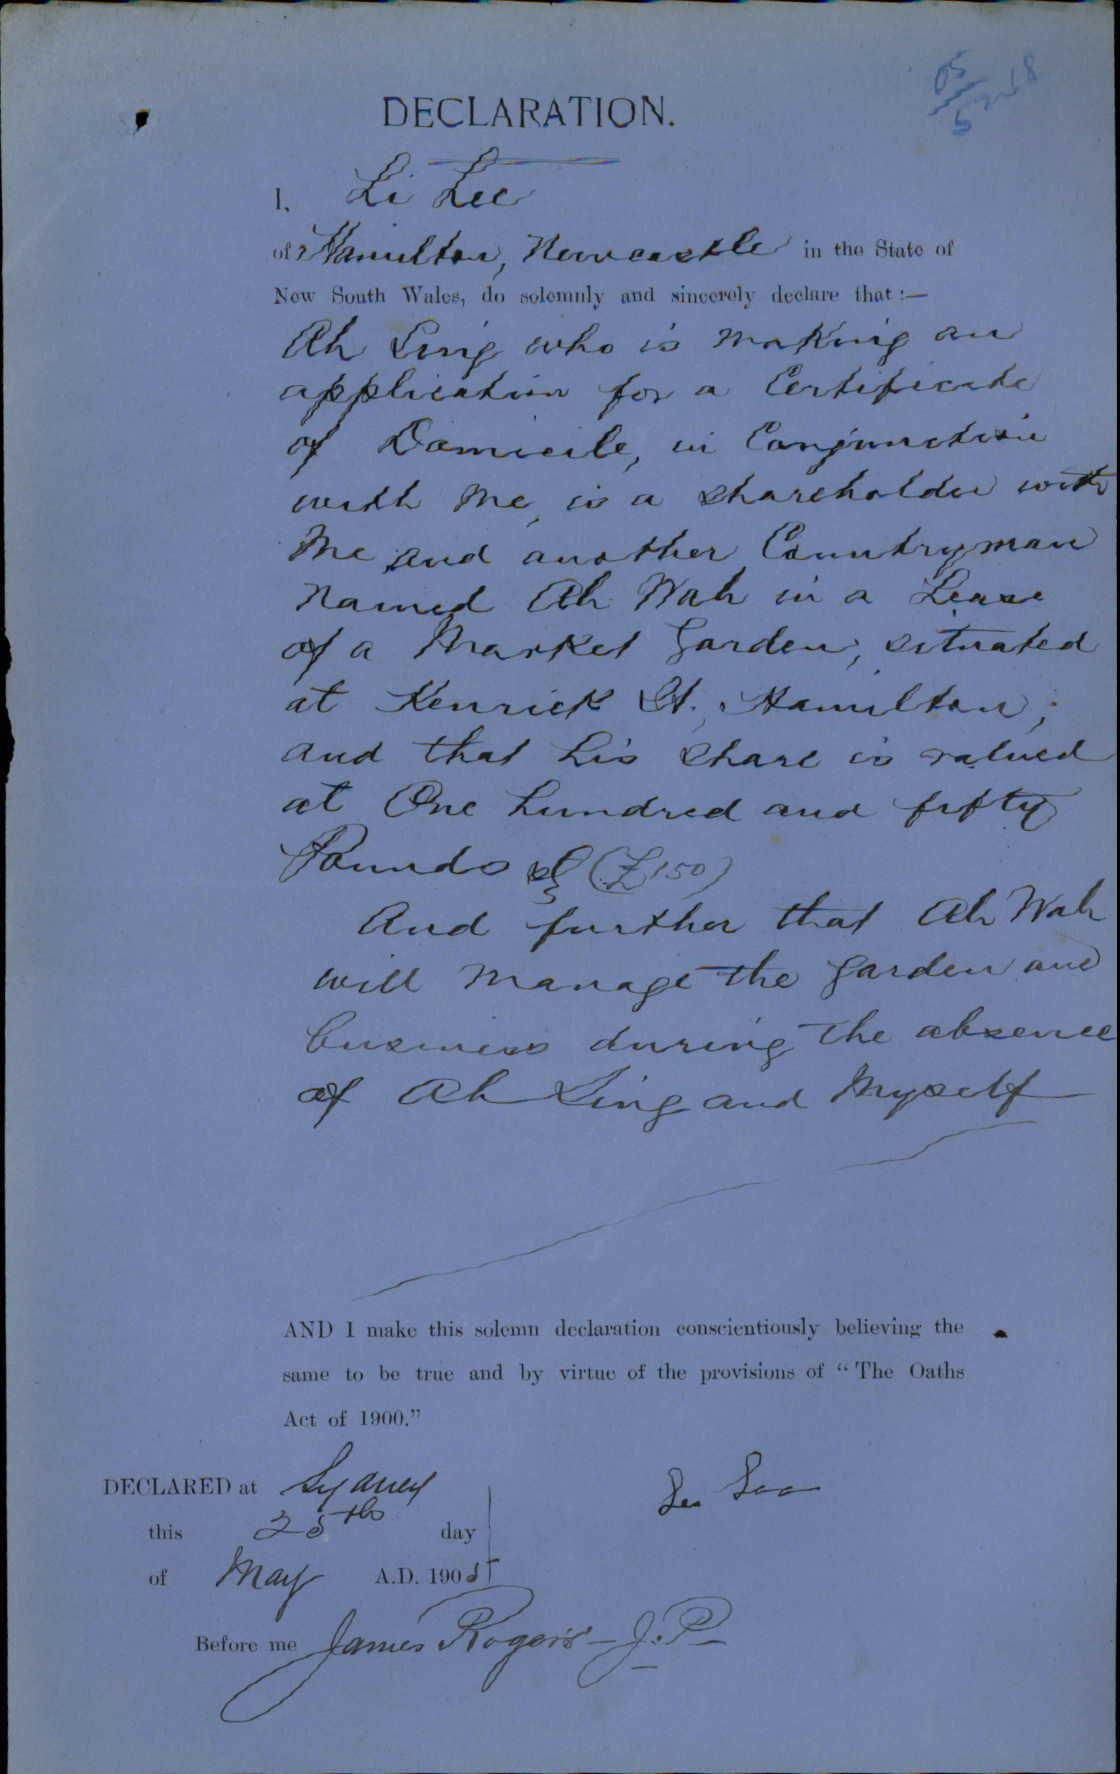 05
5218
DECLARATION.
I, Li Lee
of Hamilton, Newcastle in the State of
New South Wales, do solemnly and sincerely declare that :—
Ah Ling who is making an
application for a Certificate
of Domicile, in Conjunction
with Me, is a shareholder with
Me and another Countryman
Named Ah Wah in a Lease
of a Market Garden, situated
at Kenrick St., Hamilton;
and that his share is valued
at One hundred and fifty
Pounds (£150)
And further that Ah Wah
will Manage the Garden and
business during the absence
of Ah Ling and Myself
AND I make this solemn declaration conscientiously believing the
same to be true and by virtue of the provisions of “The Oaths
Act of 1900.”
DECLARED at Sydney
this 25th day
of May A.D. 1905
Before me James Rogers - J.P-